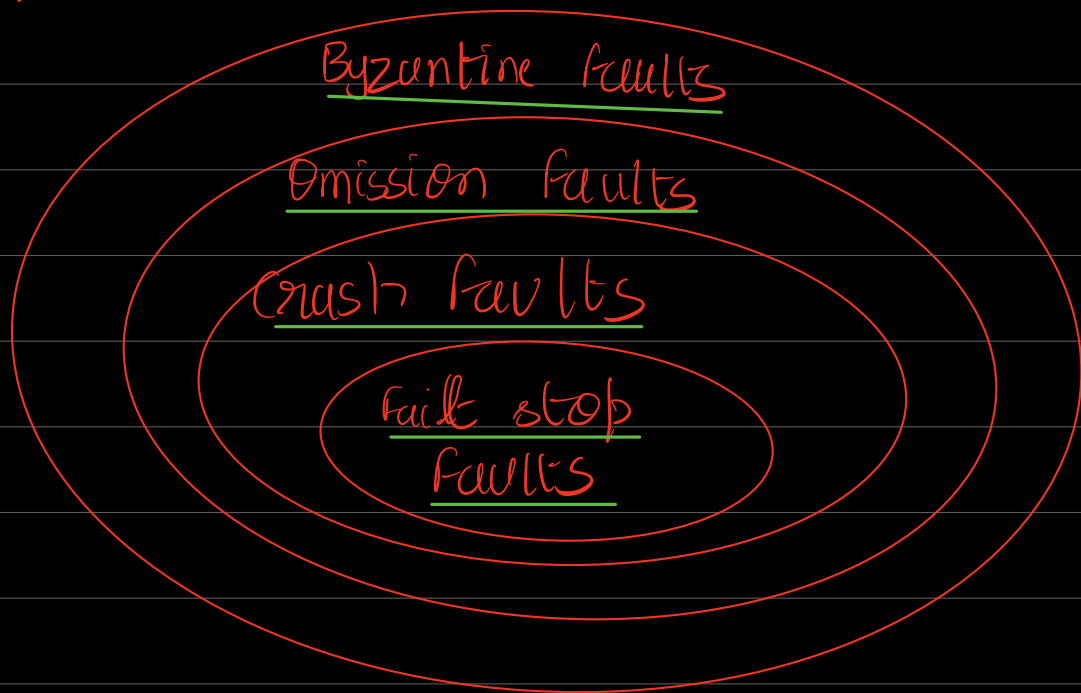 Byzantine Faults
Omission Faults
Crash Faults
Fail stop
Faults